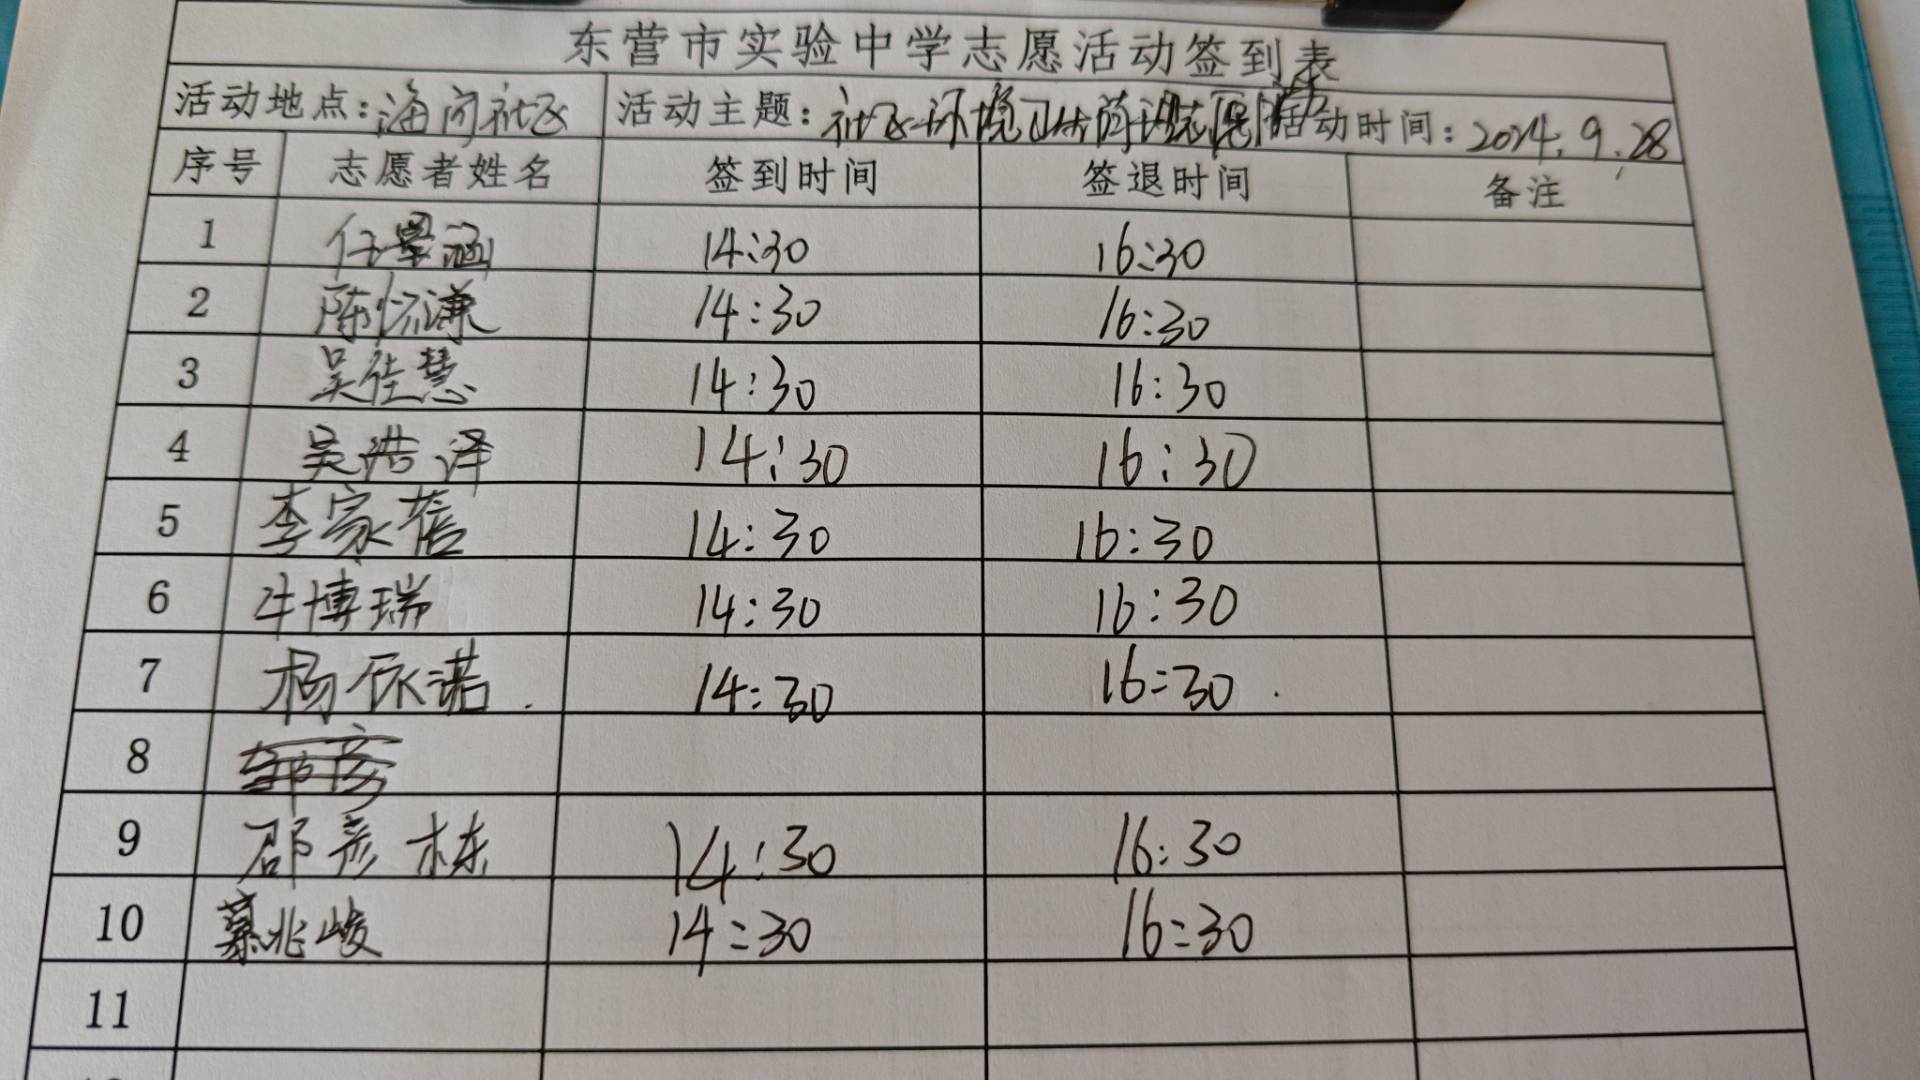 东营市实验中学志愿活动签到表
活动地点：海河社区 活动主题：社区环境卫生 活动时间：2024.9.28
序号 志愿者姓名 签到时间 签退时间 备注
1 任 涵 14:30 16:30
2 陈怀谦 14:30 16:30
3 吴佳慧 14:30 16:30
4 吴浩泽 14:30 16:30
5 李家蓓 14:30 16:30
6 牛博瑞 14:30 16:30
7 杨依诺. 14:30 16:30.
8
9 邵彦栋 14:30 16:30
10 慕兆峻 14:30 16:30
11